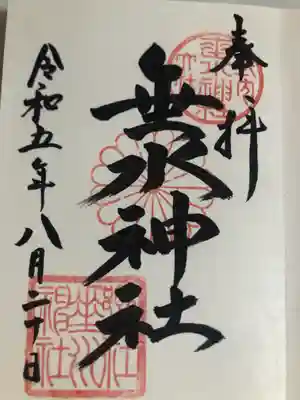 奉拝
垂水神社
令和五年八月二十日